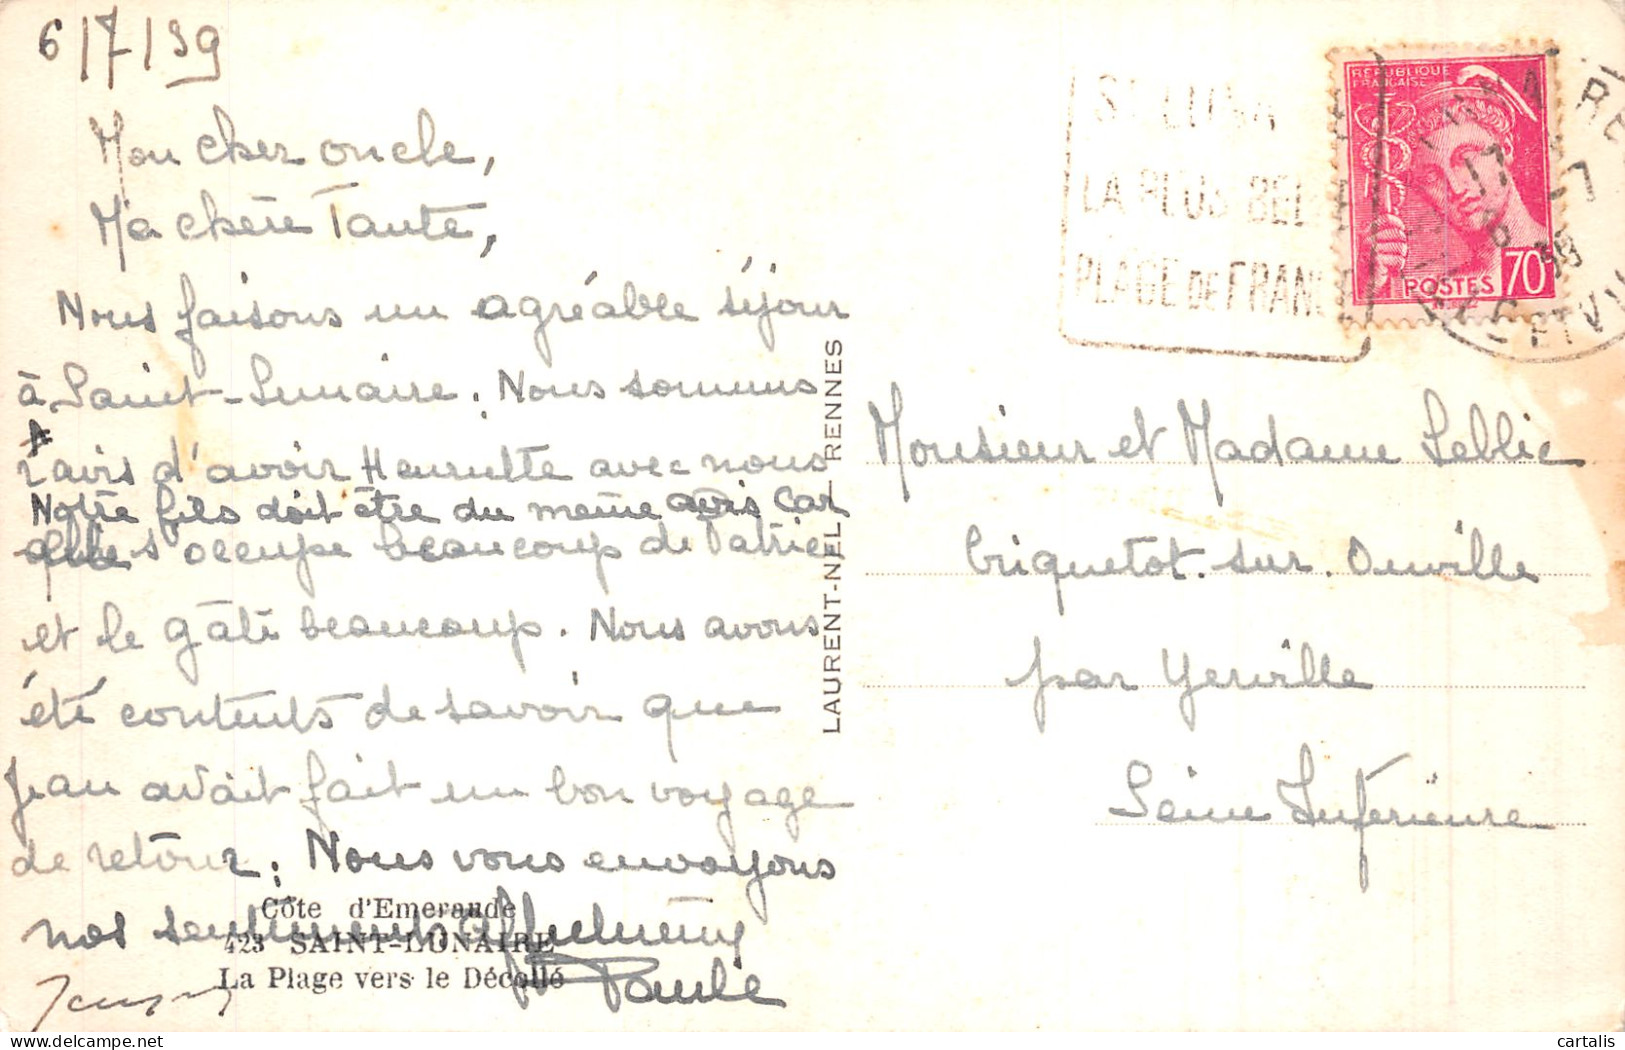 6/7/39
Mon cher oncle,
Ma chère Tante,
Nous faisons un agréable séjour
à Saint-Lunaire. Nous sommes
ravis d'avoir Henriette avec nous
Notre fils doit être du même avis car
elle s'occupe beaucoup de Patrice
et le gâte beaucoup. Nous avons
été contents de savoir que
Jean avait fait un bon voyage
de retour. Nous vous envoyons
nos sentiments affectueux
Paule
Côte d'Emeraude
423 SAINT-LUNAIRE
La Plage vers le Décollé
LAURENT-NEL - RENNES
ST LUNA
LA PLUS BEL
PLAGE DE FRANC
REPUBLIQUE
FRANÇAISE
POSTES 70
17
-7
ET V
Monsieur et Madame Leblic
Criquetot-sur-Ouville
par Yerville
Seine Inférieure
cartalis.com